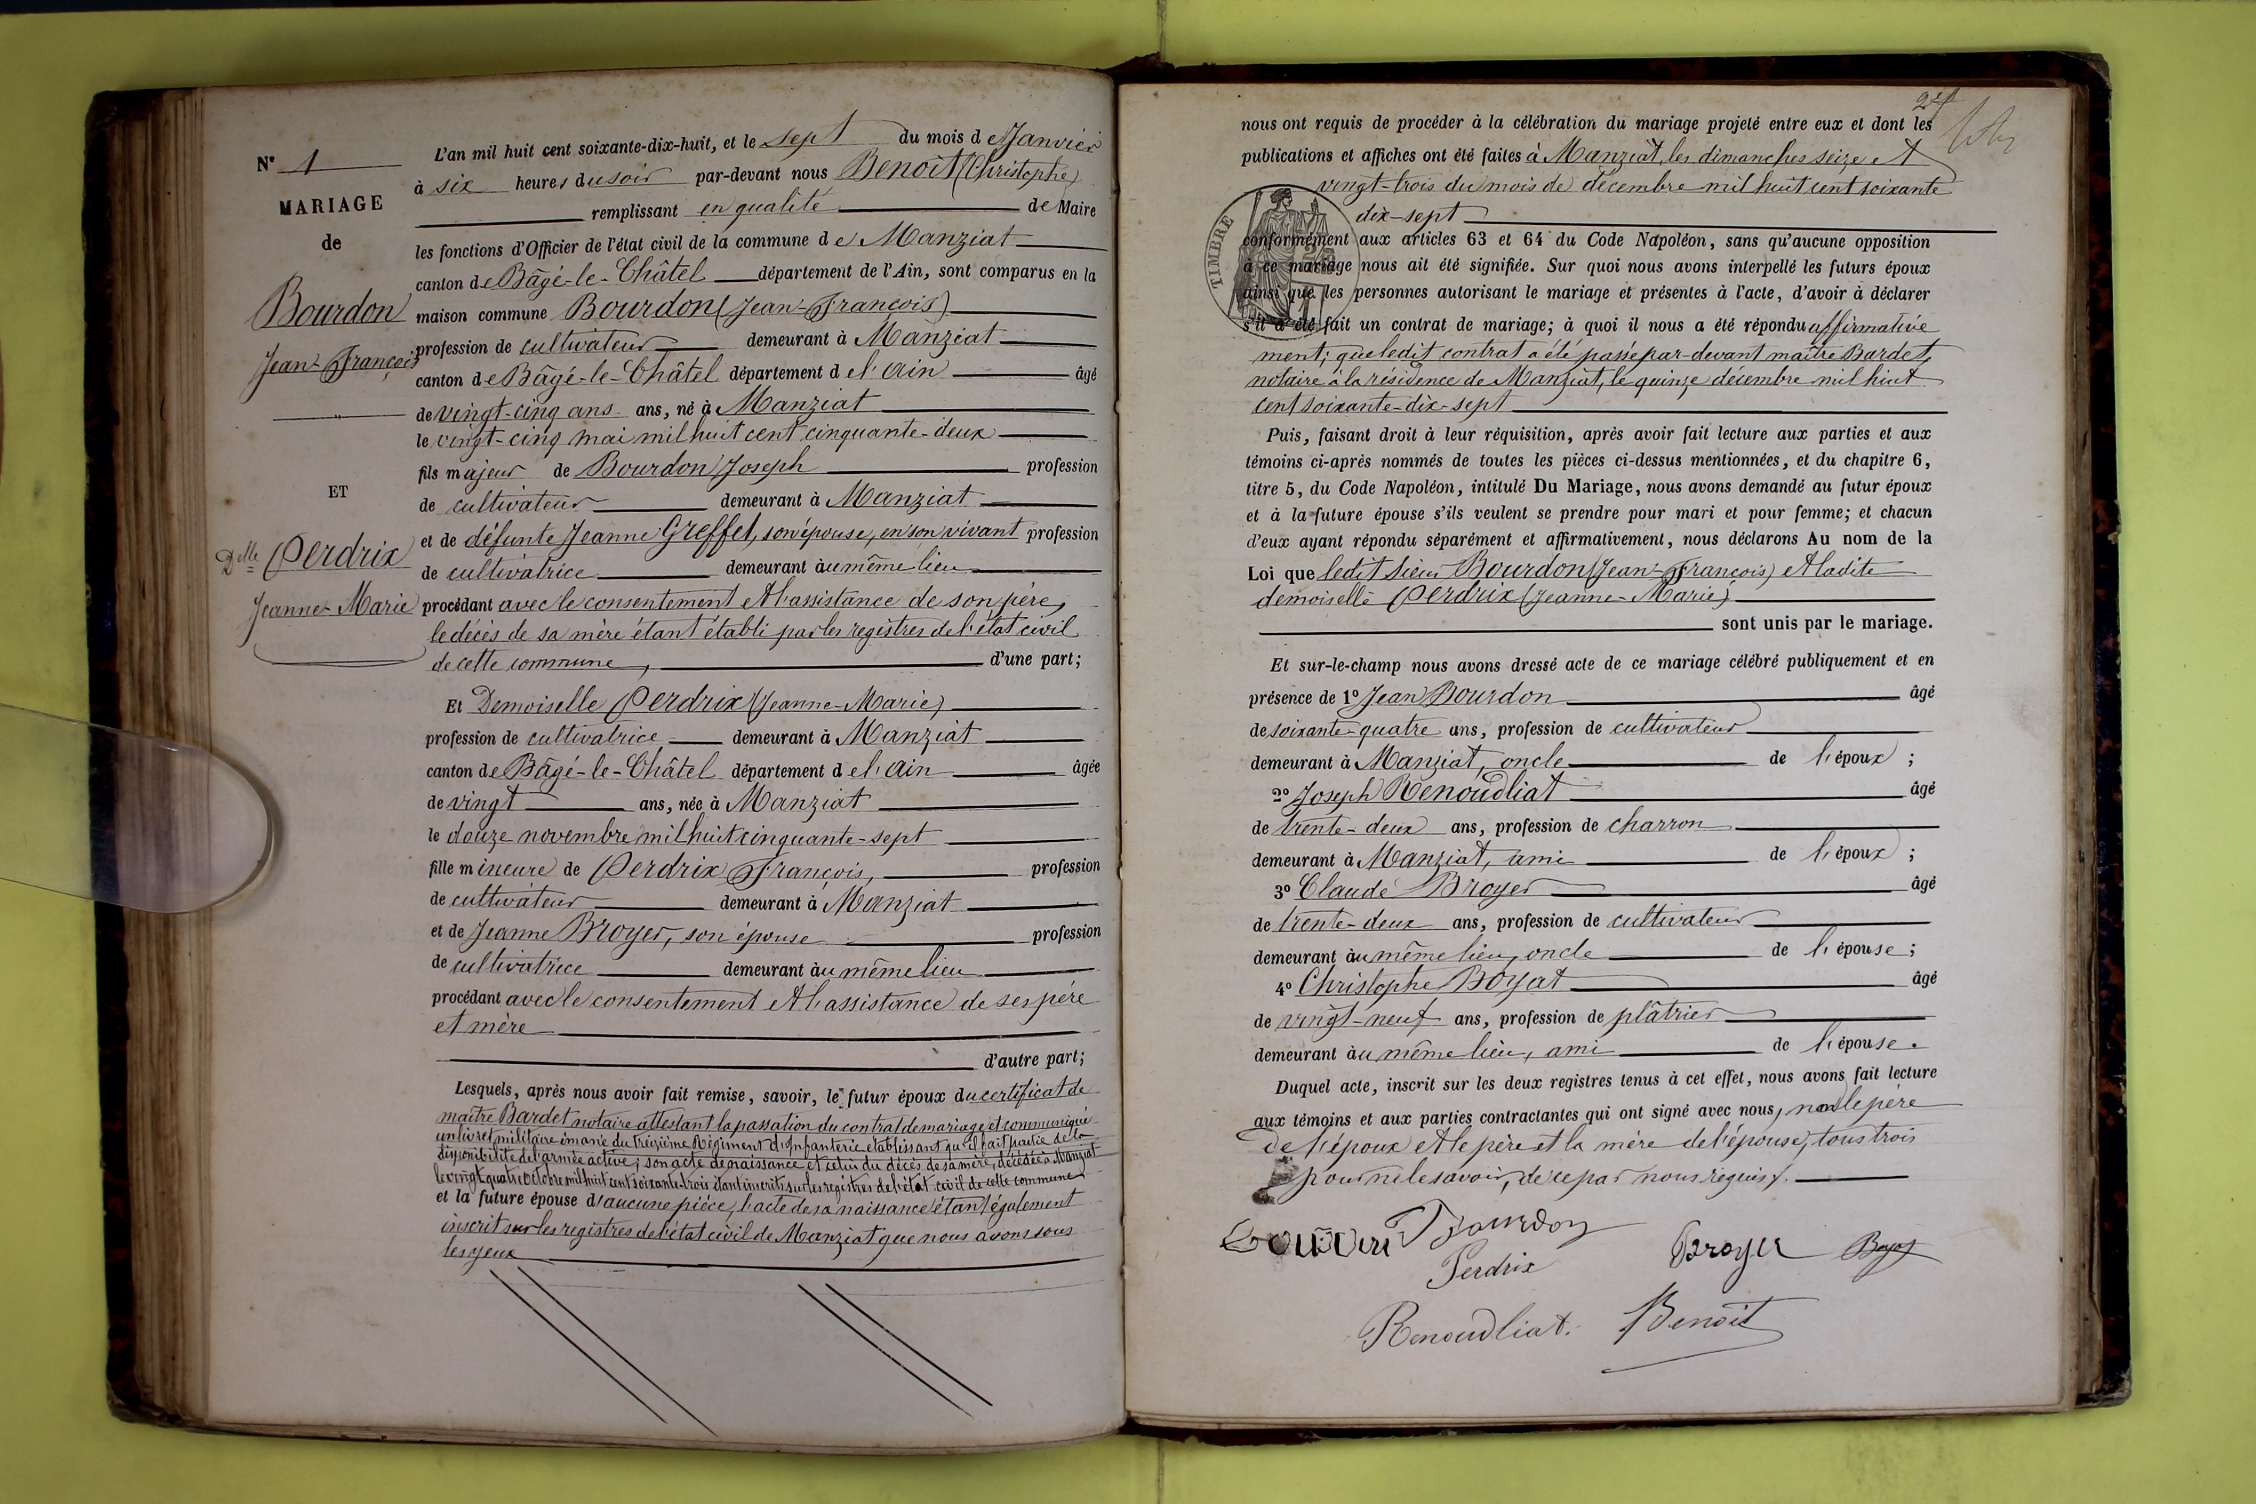 N° 1
MARIAGE
de
Bourdon
Jean-François
ET
Delle Perdrix
Jeanne-Marie
L'an mil huit cent soixante-dix-huit, et le sept du mois de Janvier
à six heures du soir par-devant nous Benoît (Christophe)
remplissant en qualité de Maire
les fonctions d'Officier de l'état civil de la commune de Manziat
canton de Bâgé-le-Châtel département de l'Ain, sont comparus en la
maison commune Bourdon (Jean-François)
profession de cultivateur demeurant à Manziat
canton de Bâgé-le-Châtel département de l'Ain âgé
de vingt-cinq ans ans, né à Manziat
le vingt-cinq mai mil huit cent cinquante-deux
fils majeur de Bourdon Joseph profession
de cultivateur demeurant à Manziat
et de défunte Jeanne Greffet, son épouse, en son vivant profession
de cultivatrice demeurant au même lieu
procédant avec le consentement et l'assistance de son père,
le décès de sa mère étant établi par les registres de l'état civil
de cette commune, d'une part;
Et Demoiselle Perdrix (Jeanne-Marie)
profession de cultivatrice demeurant à Manziat
canton de Bâgé-le-Châtel département de l'Ain âgée
de vingt ans, née à Manziat
le douze novembre mil huit cinquante-sept
fille mineure de Perdrix François, profession
de cultivateur demeurant à Manziat
et de Jeanne Broyer, son épouse profession
de cultivatrice demeurant au même lieu
procédant avec le consentement et l'assistance de ses père
et mère
d'autre part;
Lesquels, après nous avoir fait remise, savoir, le futur époux du certificat de
maître Bardet notaire attestant la passation du contrat de mariage et communiqué
un livret militaire émané du treizième Régiment d'Infanterie établissant qu'il fait partie de la
disponibilité de l'armée active; son acte de naissance et celui du décès de sa mère, décédée à Manziat
le vingt quatre Octobre mil huit cent soixante-trois étant inscrits sur les registres de l'état civil de cette commune
et la future épouse d'aucune pièce, l'acte de sa naissance étant également
inscrit sur les registres de l'état civil de Manziat que nous avons sous
les yeux
nous ont requis de procéder à la célébration du mariage projeté entre eux et dont les
publications et affiches ont été faites à Manziat, les dimanches seize et
vingt-trois du mois de décembre mil huit cent soixante
dix-sept
TIMBRE
conformément aux articles 63 et 64 du Code Napoléon, sans qu'aucune opposition
à ce mariage nous ait été signifiée. Sur quoi nous avons interpellé les futurs époux
ainsi que les personnes autorisant le mariage et présentes à l'acte, d'avoir à déclarer
s'il a été fait un contrat de mariage; à quoi il nous a été répondu affirmative
ment; que ledit contrat a été passé par-devant maître Bardet,
notaire à la résidence de Manziat, le quinze décembre mil huit
cent soixante-dix-sept
Puis, faisant droit à leur réquisition, après avoir fait lecture aux parties et aux
témoins ci-après nommés de toutes les pièces ci-dessus mentionnées, et du chapitre 6,
titre 5, du Code Napoléon, intitulé Du Mariage, nous avons demandé au futur époux
et à la future épouse s'ils veulent se prendre pour mari et pour femme; et chacun
d'eux ayant répondu séparément et affirmativement, nous déclarons Au nom de la
Loi que ledit sieur Bourdon (Jean-François) et ladite
demoiselle Perdrix (Jeanne-Marie)
sont unis par le mariage.
Et sur-le-champ nous avons dressé acte de ce mariage célébré publiquement et en
présence de 1° Jean Bourdon âgé
de soixante-quatre ans, profession de cultivateur
demeurant à Manziat, oncle de l'époux ;
2° Joseph Renoudliat âgé
de trente-deux ans, profession de charron
demeurant à Manziat, ami de l'époux ;
3° Claude Broyer âgé
de trente-deux ans, profession de cultivateur
demeurant au même lieu, oncle de l'épouse ;
4° Christophe Boyat âgé
de vingt-neuf ans, profession de plâtrier
demeurant au même lieu, ami de l'épouse.
Duquel acte, inscrit sur les deux registres tenus à cet effet, nous avons fait lecture
aux témoins et aux parties contractantes qui ont signé avec nous, non le père
de l'époux et le père et la mère de l'épouse, tous trois
pour ne le savoir, de ce par nous requis.
Bourdon Bourdon
Perdrix Broyer Boyat
Renoudliat. Benoît